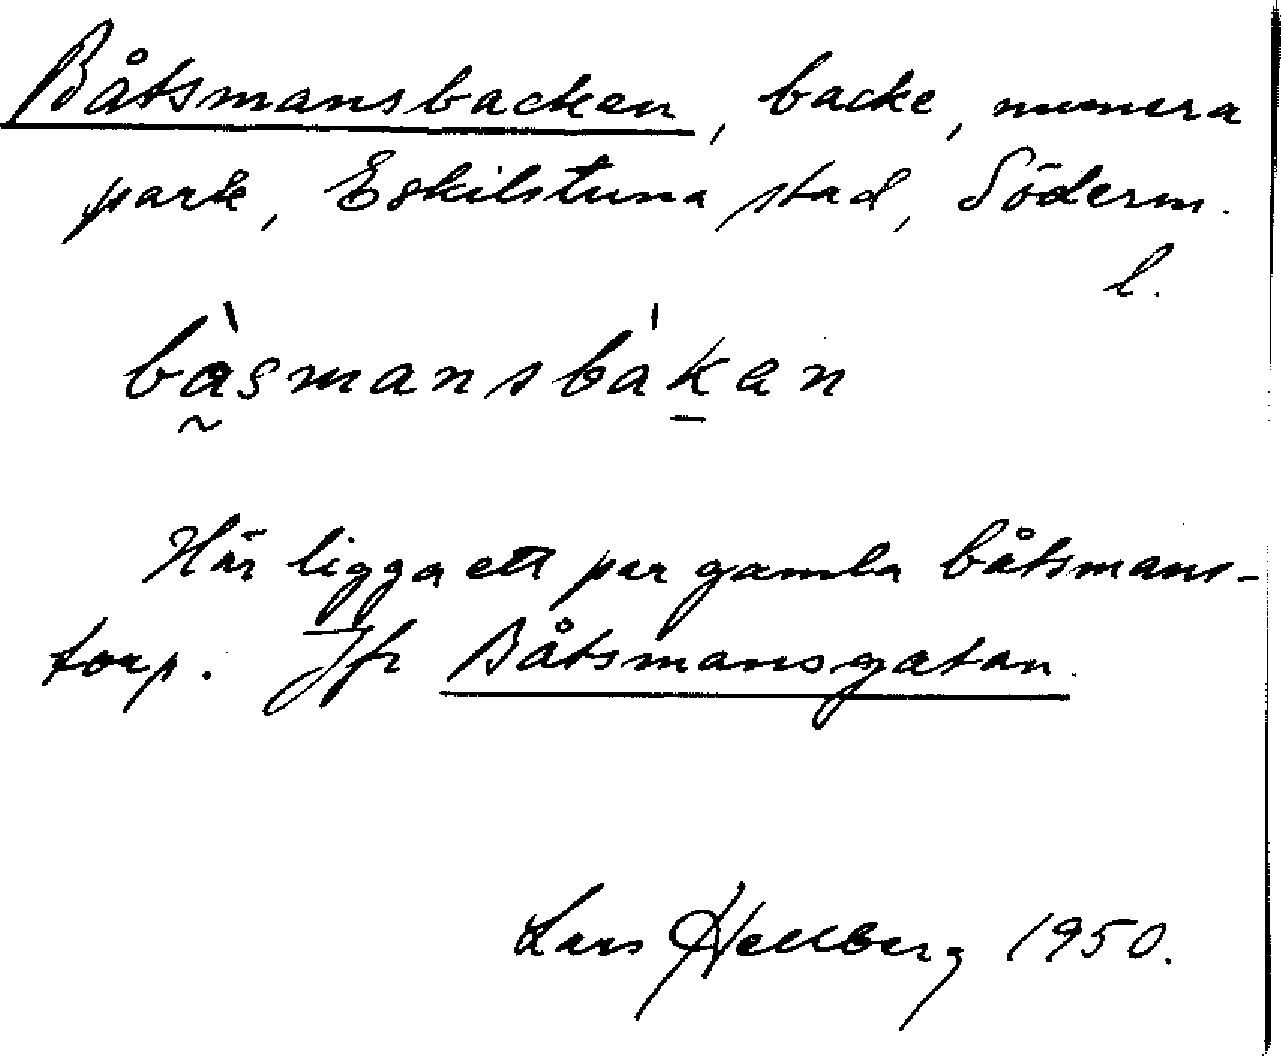 Båtsmansbacken, backe, numera
park, Eskilstuna stad, Söderm.
l.
bàsmansbákan
Här ligga ett par gamla båtsmans-
torp. Jfr Båtsmansgatan.
Lars Hellberg 1950.